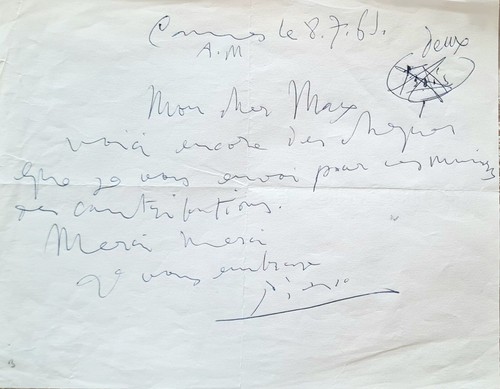 Cannes le 8.7.61.
A.M
deux
Mon cher Max
voici encore des chèques
que je vous envoi pour
des contributions.
Merci merci
Je vous embrasse
Picasso